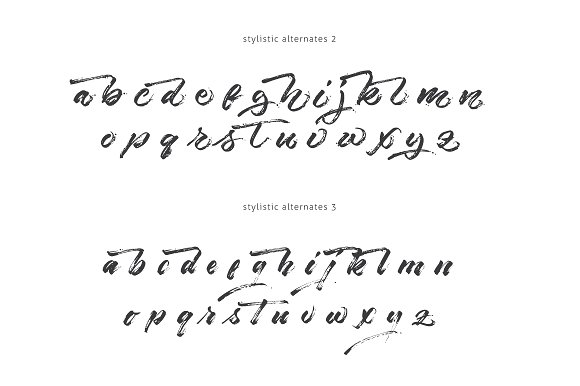 stylistic alternates 2
a b c d e f g h i j k l m n
o p q r s t u v w x y z
stylistic alternates 3
a b c d e f g h i j k l m n
o p q r s t u v w x y z